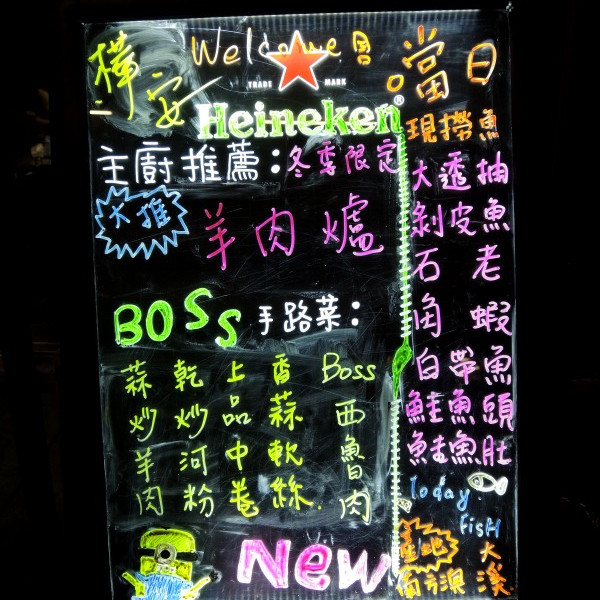 Welcome
TRADE MARK
Heineken®
主廚推薦：冬季限定
大推
羊肉爐
BOSS 手路菜：
蒜炒羊肉
乾炒河粉
上品中卷
香蒜軟絲
Boss 西魯肉
New
當日
現撈魚
大透抽
剝皮魚
石老
角蝦
白帶魚
鮭魚頭
鮭魚肚
Today
FisH
產地
大溪
南方澳